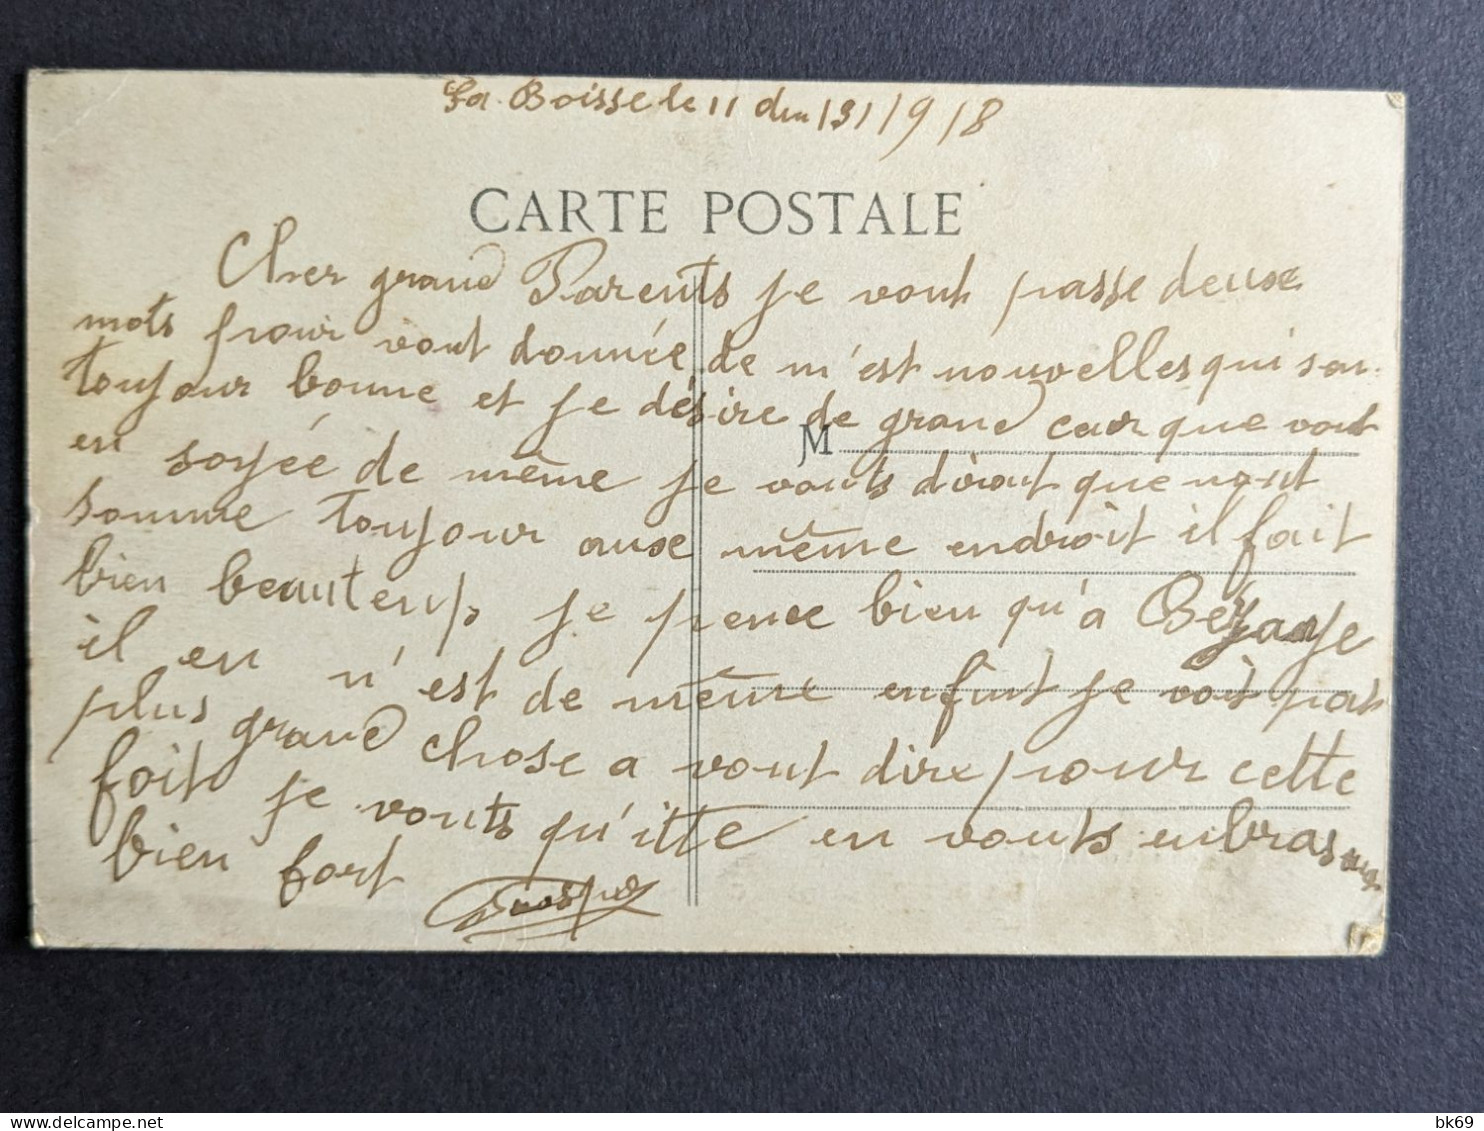 La Boisse le 11 du 131/9/8
CARTE POSTALE
Cher grand Parents je vout passe deuxe
mots pour vout donnée de m'est nouvelles qui son
toujour bonne et je désire de grand cour que vout
M
en soyée de même je vouts dirout que nout
somme toujour auxe même endroit il fait
bien beautemp je pence bien qu'a
il en n'est de même enfint je voit pas
plus grand chose a vout dire pour cette
foit je vouts qu'itte en vouts enbras
bien fort
bk69